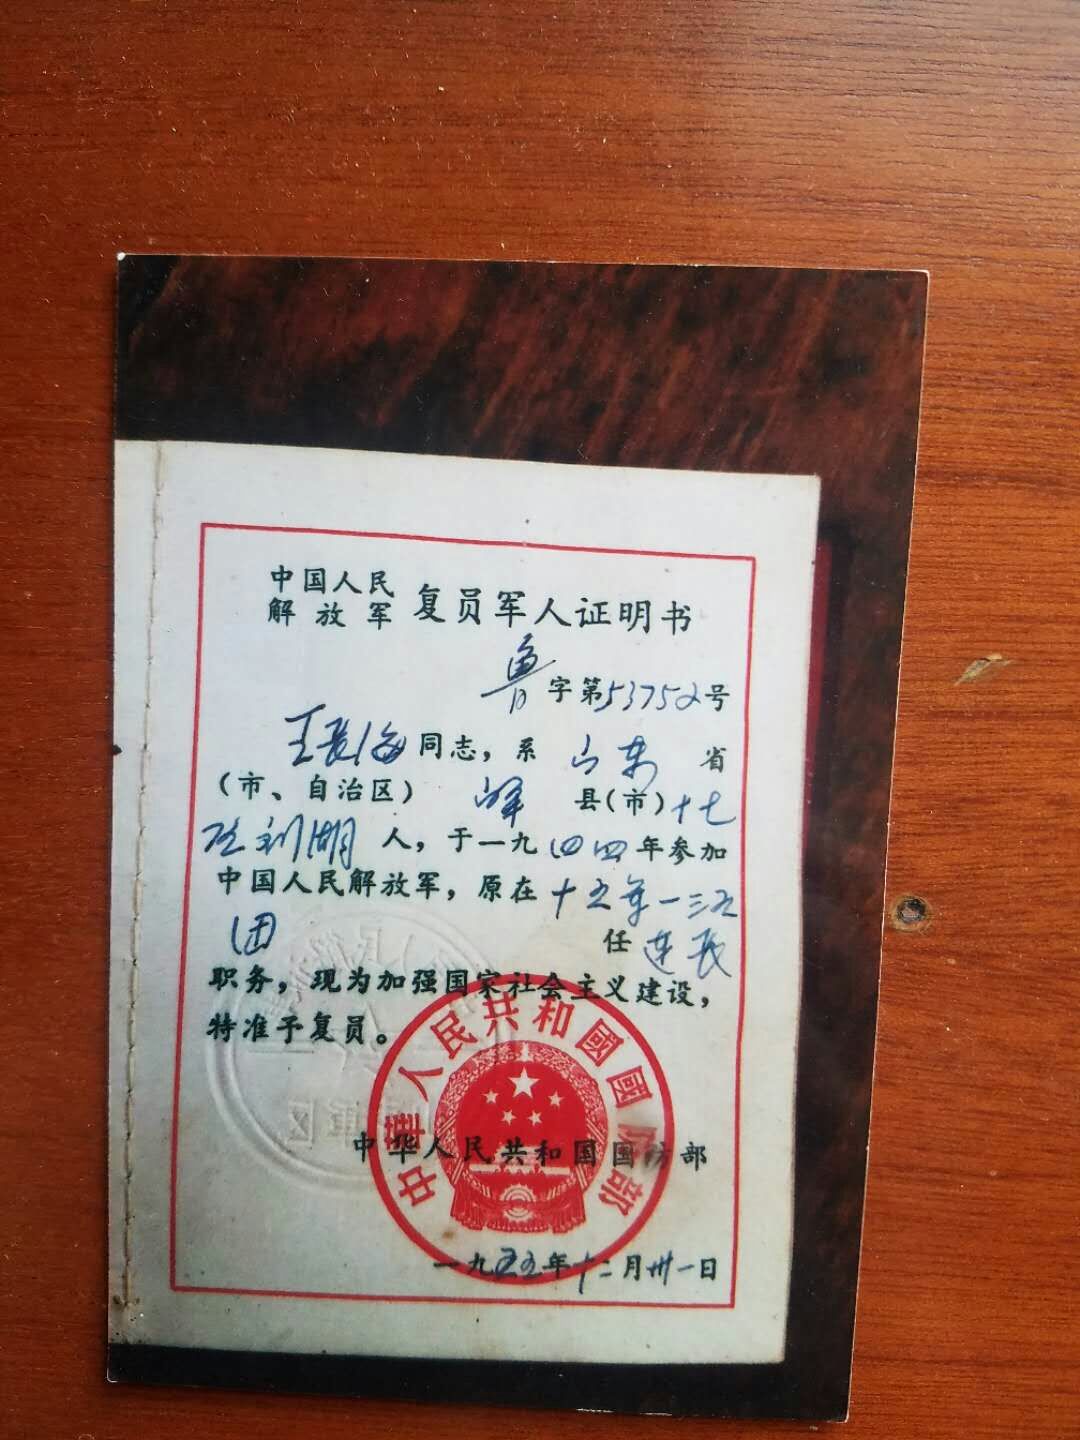 中国人民
解放军 复员军人证明书
鲁字第53752号
王长海同志，系 山东 省
（市、自治区） 峄 县（市）十七
区刘湖 人，于一九四四年参加
中国人民解放军，原在十五军一三五
团 任连长
职务，现为加强国家社会主义建设，
特准予复员。
中华人民共和國國防部
中华人民共和国国防部
一九五五年十二月卅一日